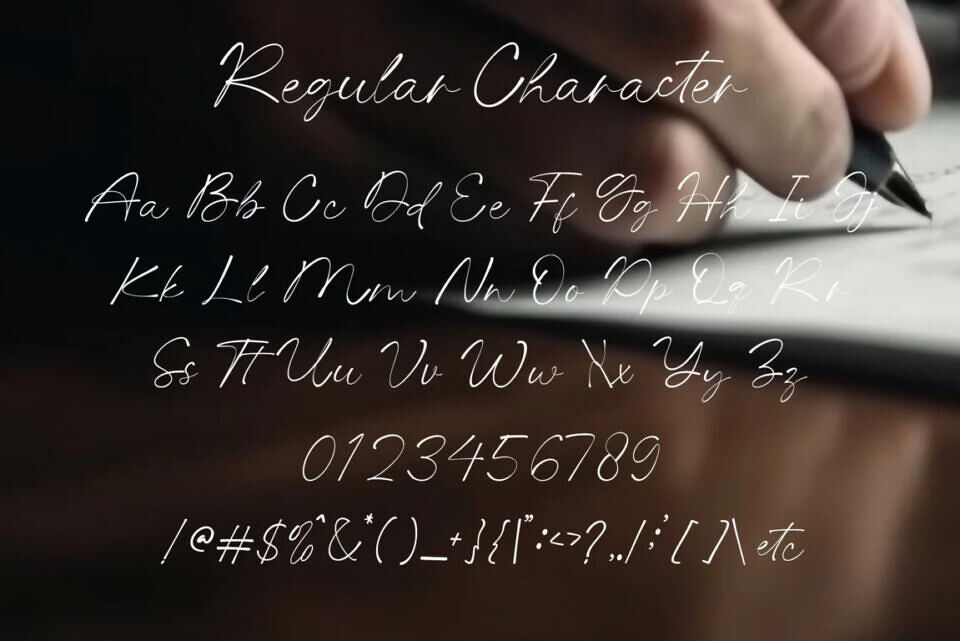 Regular Character
Aa Bb Cc Dd Ee Ff Gg Hh Ii Jj
Kk Ll Mm Nn Oo Pp Qq Rr
Ss Tt Uu Vv Ww Xx Yy Zz
0123456789
/@#$%^&*()_+}{|":<>?,./;'[]\ etc